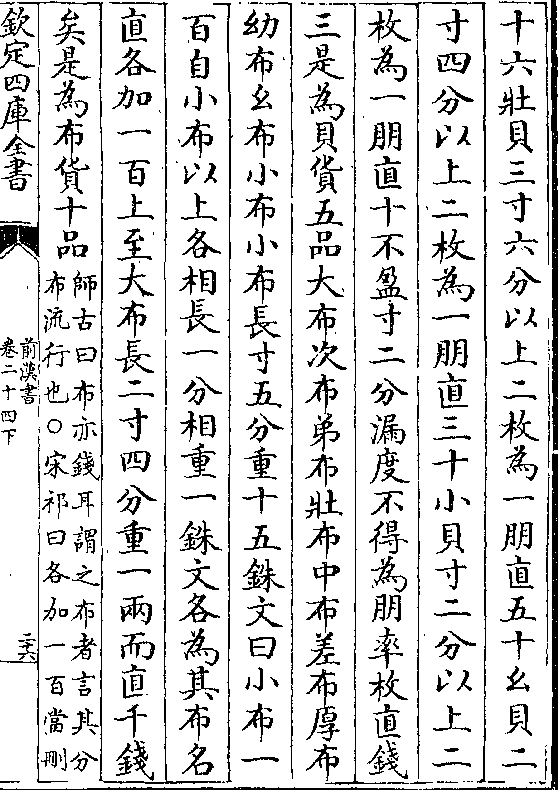 十六壯貝三寸六分以上二枚為一朋直五十幺貝二
寸四分以上二枚為一朋直三十小貝寸二分以上二
枚為一朋直十不盈寸二分漏度不得為朋率枚直錢
三是為貝貨五品大布次布弟布壯布中布差布厚布
幼布幺布小布小布長寸五分重十五銖文曰小布一
百自小布以上各相長一分相重一銖文各為其布名
直各加一百上至大布長二寸四分重一兩而直千錢
矣是為布貨十品
師古曰布亦錢耳謂之布者言其分
布流行也○宋祁曰各加一百當刪
欽定四庫全書
前漢書
卷二十四下
二六